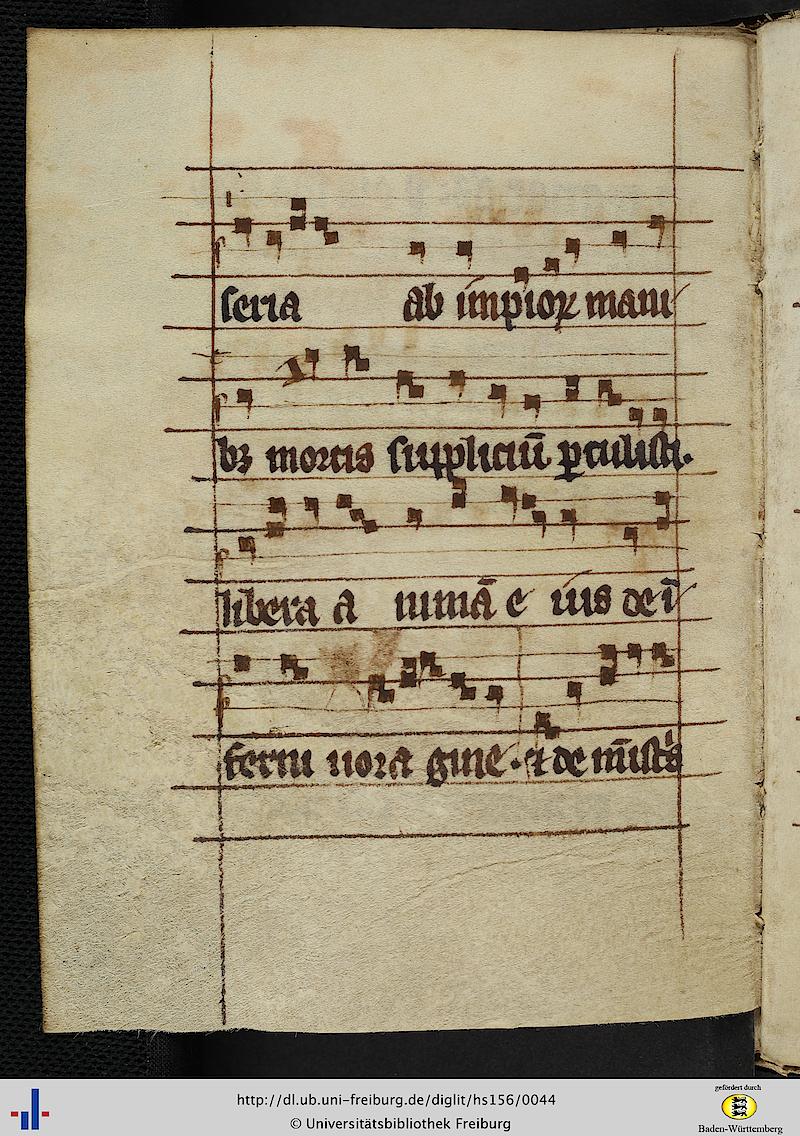 seria ab impioꝝ manu
bꝫ mortis suppliciū ꝑtulisti.
libera a nimā e ius de ī
ferni uora gine. ⁊ de mīistꝰs
http://dl.ub.uni-freiburg.de/diglit/hs156/0044
© Universitätsbibliothek Freiburg
gefördert durch
Baden-Württemberg